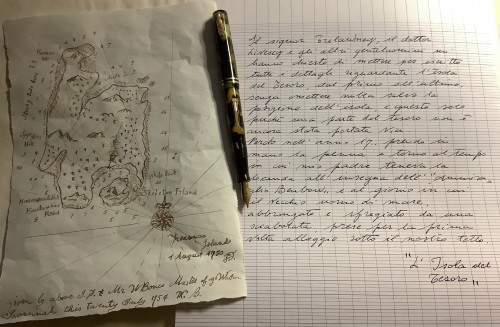 Spye Glass Hill
Skeleton Island
Treasure
Island
1 August 1750 J.F.
given by above J.F. & Mr W Bones Maste of ye Walrus
Savannah this twenty July 1754 W. B.
Il signor Trelawney, il dottor
Livesey e gli altri gentiluomini mi
hanno chiesto di mettere per iscritto
tutti i dettagli riguardante l'Isola
del Tesoro, dal primo all'ultimo,
senza omettere nulla salvo la
posizione dell'isola e questo solo
perché una parte del tesoro non è
ancora stata portata via.
Perciò nell'anno 17.. prendo in
mano la penna e torno al tempo
in cui mio padre teneva la
locanda all'insegna dell'"Ammira-
glio Benbow", e al giorno in cui
il vecchio uomo di mare,
abbronzato e sfregiato da una
sciabolata, prese per la prima
volta alloggio sotto il nostro tetto.
"L'Isola del
Tesoro"